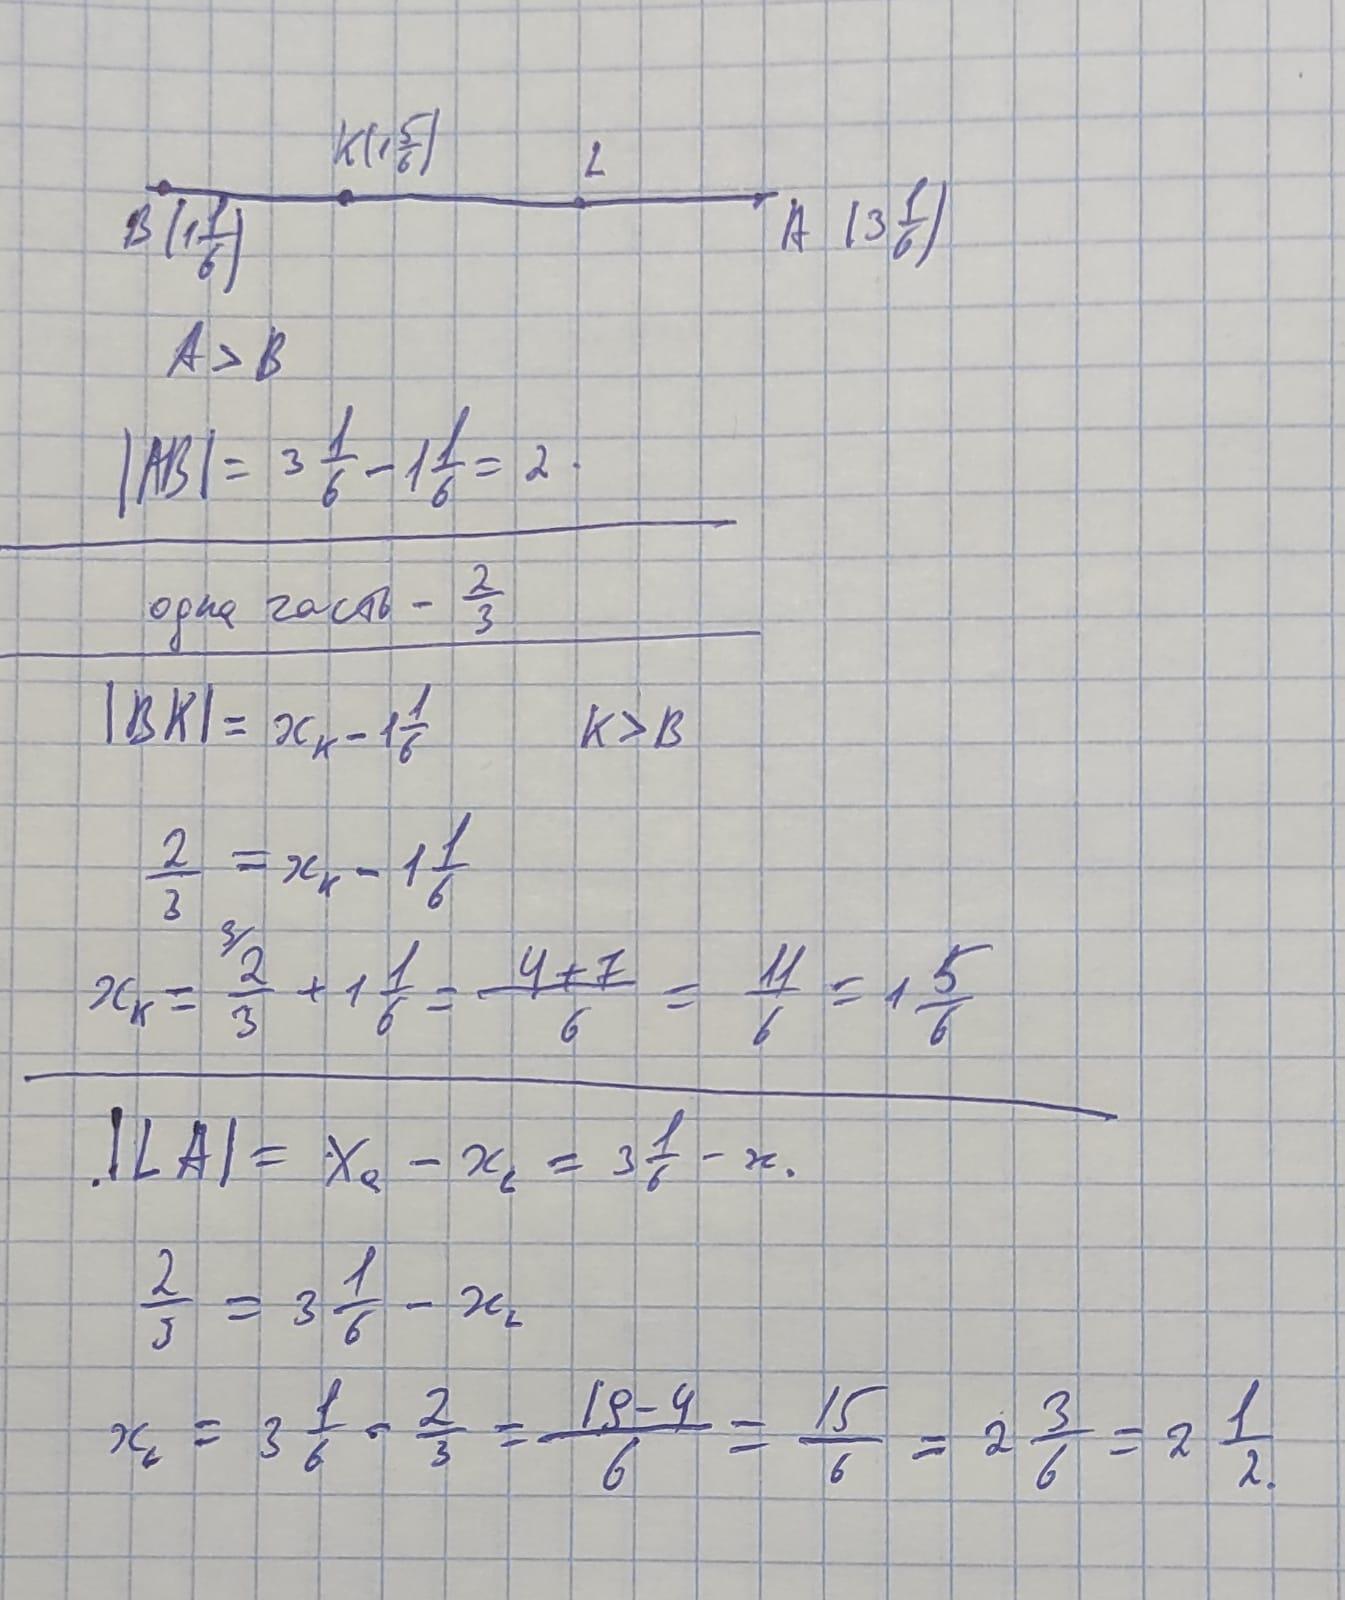 K(1 5/6) L
B(1 1/6) A (3 1/6)
A > B
|AB| = 3 1/6 - 1 1/6 = 2.
одна часть - 2/3
|BK| = x_K - 1 1/6 K > B
2/3 = x_K - 1 1/6
x_K = 2/3 + 1 1/6 = (4+7)/6 = 11/6 = 1 5/6
|LA| = x_a - x_L = 3 1/6 - x.
2/3 = 3 1/6 - x_L
x_L = 3 1/6 - 2/3 = (19-4)/6 = 15/6 = 2 3/6 = 2 1/2.